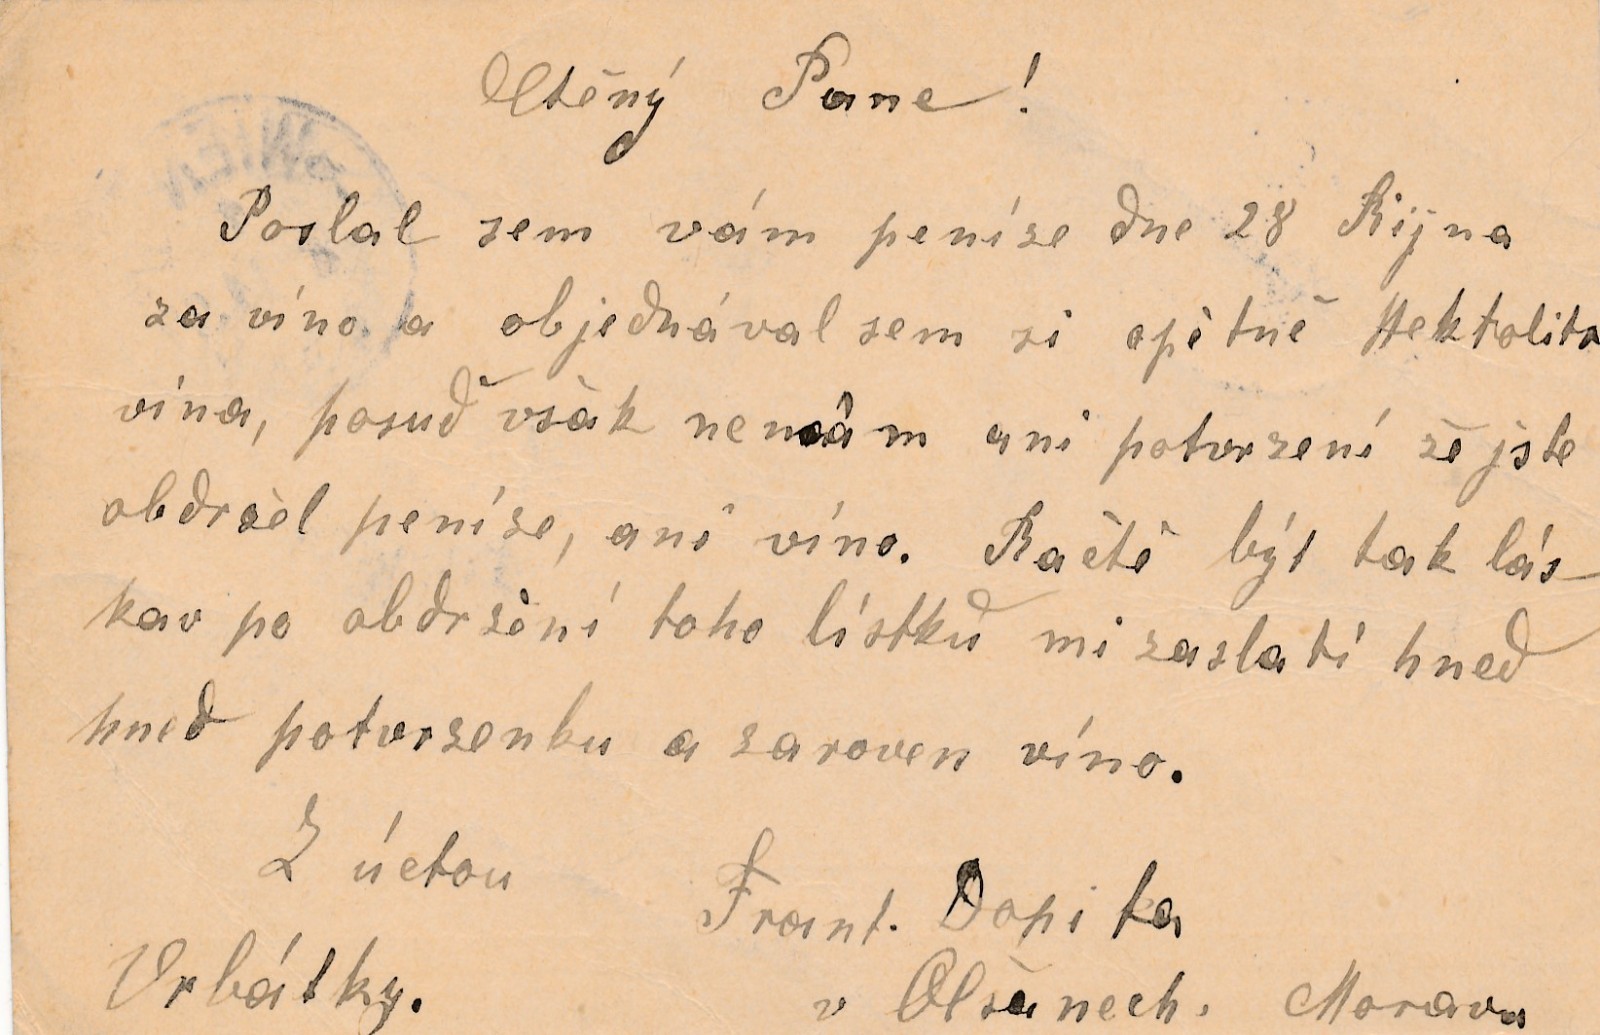 Ctěný Pane!
Poslal sem vám peníze dne 28 Řijna
za víno a objednával sem si opětně Hektolitr
vína, posuď však nemám ani potvrzení že jste
obdržel peníze, ani víno. Račtě být tak lás
kav po obdržení toho lístku mi zaslati hned
hned potvrzenku a zaroven víno.
Z úctou
Frant. Dopita
Vrbátky.
v Olšanech. Morava